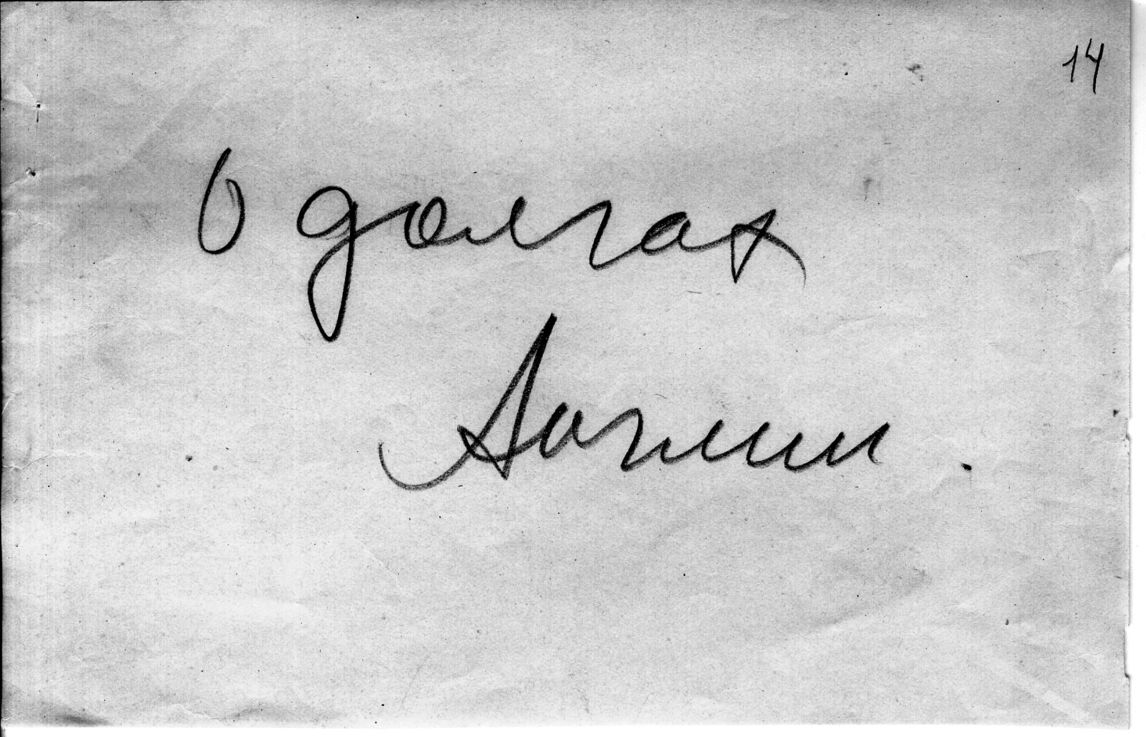 14
О долгах
Англии.